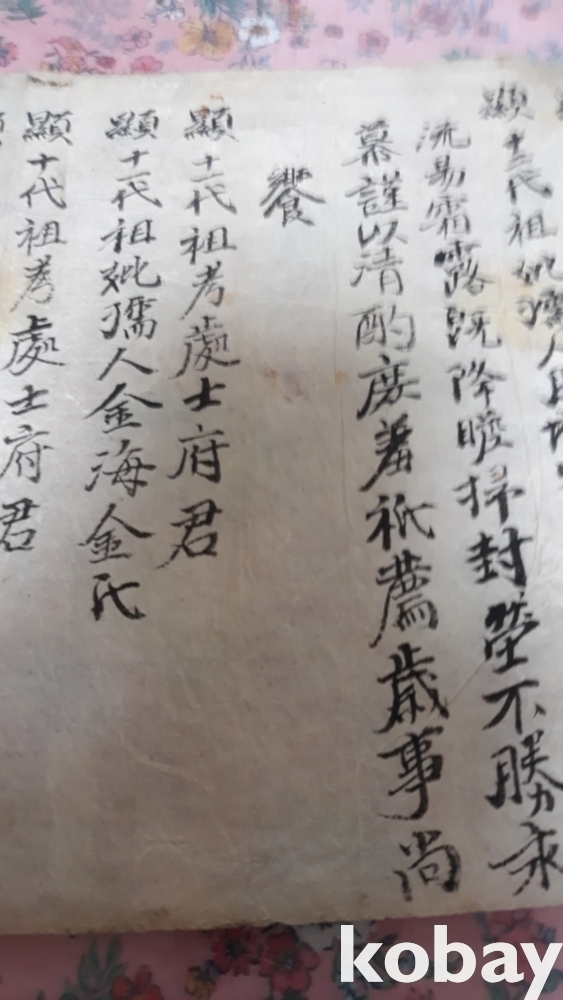 顯十二代祖妣孺人
流易霜露旣降瞻掃封塋不勝永
慕謹以清酌庶羞祗薦歲事尙
饗
顯十一代祖考處士府君
顯十一代祖妣孺人金海金氏
顯十代祖考處士府君
kobay